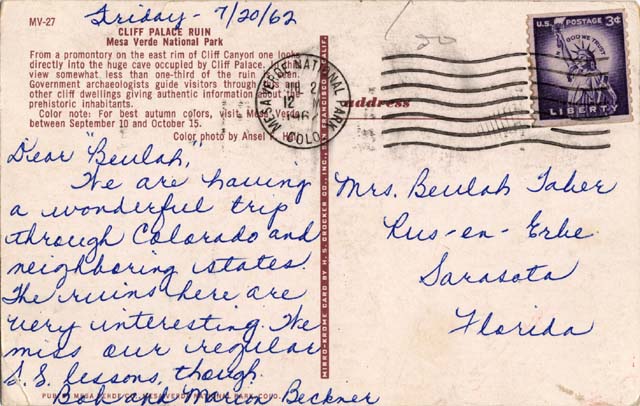 Friday - 7/20/62
MV-27
CLIFF PALACE RUIN
Mesa Verde National Park
From a promontory on the east rim of Cliff Canyon one looks
directly into the huge cave occupied by Cliff Palace. In this
view somewhat less than one-third of the ruin is seen.
Government archaeologists guide visitors through this and
other cliff dwellings giving authentic information about the
prehistoric inhabitants.
Color note: For best autumn colors, visit Mesa Verde
between September 10 and October 15.
Color photo by Ansel F. Hall
Dear "Beulah,"
We are having
a wonderful trip
through Colorado and
neighboring states.
The ruins here are
very interesting. We
miss our regular
S.S. lessons, though.
Bob and Marion Beckner
PUB. BY MESA VERDE CO., MESA VERDE NATIONAL PARK, COLO.
MIRRO-KROME CARD BY H. S. CROCKER CO., INC., SAN FRANCISCO, CALIF.
MESA VERDE NATIONAL PARK
COLO.
12 M
Address
U.S. POSTAGE 3¢
IN GOD WE TRUST
LIBERTY
Mrs. Beulah Taber
Rus-en-Erbe
Sarasota
Florida